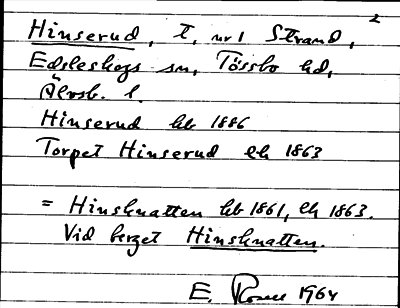 2
Hinserud, t. nr 1 Strand,
Edsleskogs sn, Tössbo hd,
Älvsb. l.
Hinserud kb 1886
Torpet Hinserud Ek 1863
= Hinsknatten kb 1861, Ek 1863.
Vid berget Hinsknatten.
E. 1964